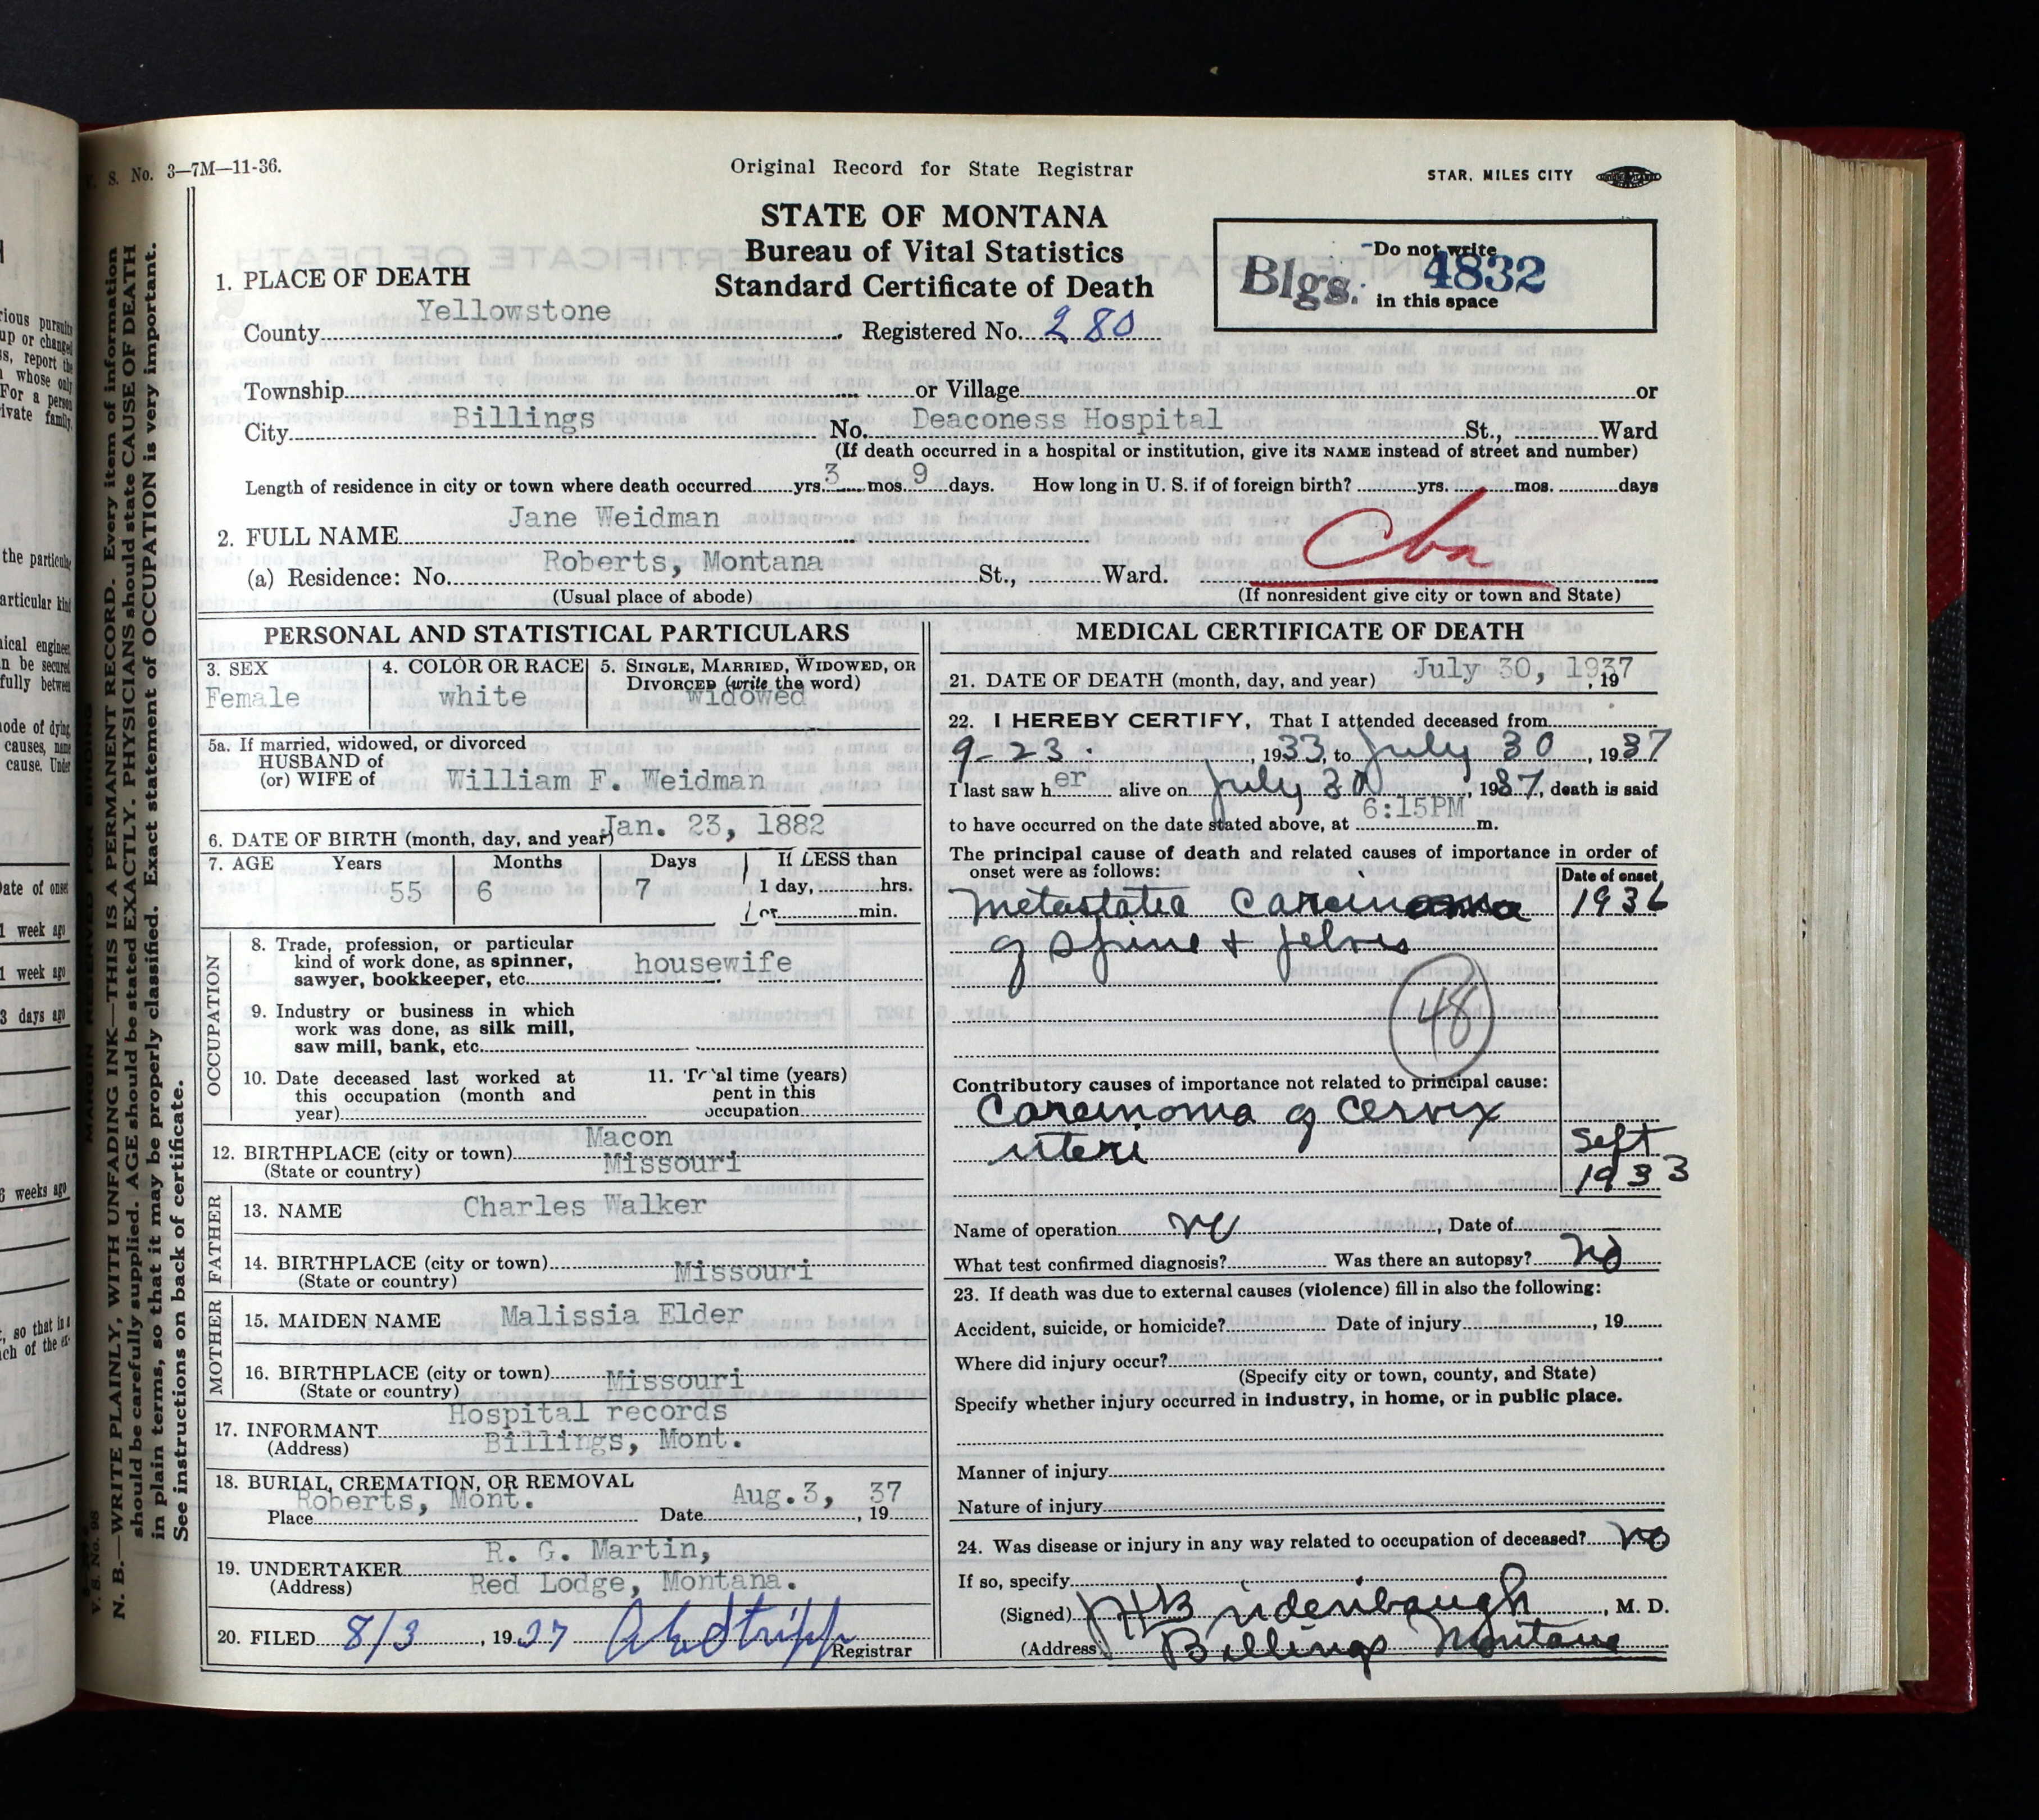 S. No. 3—7M—11-36.
Original Record for State Registrar
STAR, MILES CITY
STATE OF MONTANA
Bureau of Vital Statistics
Standard Certificate of Death
Do not write
Blgs. 4832
in this space
1. PLACE OF DEATH
County Yellowstone Registered No. 280
Township or Village or
City Billings No. Deaconess Hospital St., Ward
(If death occurred in a hospital or institution, give its NAME instead of street and number)
Length of residence in city or town where death occurred yrs. 3 mos. 9 days. How long in U. S. if of foreign birth? yrs. mos. days
2. FULL NAME Jane Weidman
(a) Residence: No. Roberts, Montana St., Ward.
(Usual place of abode) (If nonresident give city or town and State)
PERSONAL AND STATISTICAL PARTICULARS
3. SEX 4. COLOR OR RACE 5. SINGLE, MARRIED, WIDOWED, OR
DIVORCED (write the word)
Female white widowed
5a. If married, widowed, or divorced
HUSBAND of
(or) WIFE of William F. Weidman
6. DATE OF BIRTH (month, day, and year) Jan. 23, 1882
7. AGE Years Months Days If LESS than
55 6 7 1 day, hrs.
or min.
OCCUPATION
8. Trade, profession, or particular
kind of work done, as spinner, housewife
sawyer, bookkeeper, etc.
9. Industry or business in which
work was done, as silk mill,
saw mill, bank, etc.
10. Date deceased last worked at
this occupation (month and
year)
11. Total time (years)
pent in this
occupation
12. BIRTHPLACE (city or town) Macon
(State or country) Missouri
FATHER
13. NAME Charles Walker
14. BIRTHPLACE (city or town)
(State or country) Missouri
MOTHER
15. MAIDEN NAME Malissia Elder
16. BIRTHPLACE (city or town)
(State or country) Missouri
17. INFORMANT Hospital records
(Address) Billings, Mont.
18. BURIAL, CREMATION, OR REMOVAL
Place Roberts, Mont. Date Aug. 3, 1937
19. UNDERTAKER R. G. Martin,
(Address) Red Lodge, Montana.
20. FILED 8/3, 1937 Registrar
MEDICAL CERTIFICATE OF DEATH
21. DATE OF DEATH (month, day, and year) July 30, 1937, 19
22. I HEREBY CERTIFY, That I attended deceased from
9-23, 1933, to July 30, 1937
I last saw her alive on July 30, 1937, death is said
to have occurred on the date stated above, at 6:15PM m.
The principal cause of death and related causes of importance in order of
onset were as follows: Date of onset
Metastatic Carcinoma 1936
of Spine + pelvis
48
Contributory causes of importance not related to principal cause:
Carcinoma of Cervix
uteri Sept
1933
Name of operation no, Date of
What test confirmed diagnosis? Was there an autopsy? No
23. If death was due to external causes (violence) fill in also the following:
Accident, suicide, or homicide? Date of injury, 19
Where did injury occur?
(Specify city or town, county, and State)
Specify whether injury occurred in industry, in home, or in public place.
Manner of injury
Nature of injury
24. Was disease or injury in any way related to occupation of deceased? No
If so, specify
(Signed) M. D.
(Address) Billings Montana
MARGIN RESERVED FOR BINDING
V. S. No. 98
N. B.—WRITE PLAINLY, WITH UNFADING INK—THIS IS A PERMANENT RECORD. Every item of information
should be carefully supplied. AGE should be stated EXACTLY. PHYSICIANS should state CAUSE OF DEATH
in plain terms, so that it may be properly classified. Exact statement of OCCUPATION is very important.
See instructions on back of certificate.